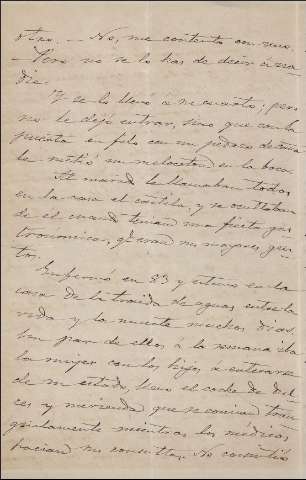 otro. — No, me contento con uno.
— Pero no se lo has de decir á na-
die.
Y se lo llevó á su cuarto; pero
no le dejó entrar, sino que con la
puerta en filo con un pedazo de
le metió un melocotón en la boca.
Al marido le llamaban todos
en la casa el costilla, y se ocultaban
de él cuando tenían una fiesta gas-
tronómica, qe eran sus mayores gus-
tos.
Enfermó en 83 y estuvo en la
casa de la traida de aguas entre la
vida y la muerte muchos días.
Un par de ellos á la semana iba
la mujer con los hijos á enterarse
de su estado, lleno el coche de dul-
ces y merienda que se comían tran-
quilamente mientras los médicos
hacían su consulta. No consintió